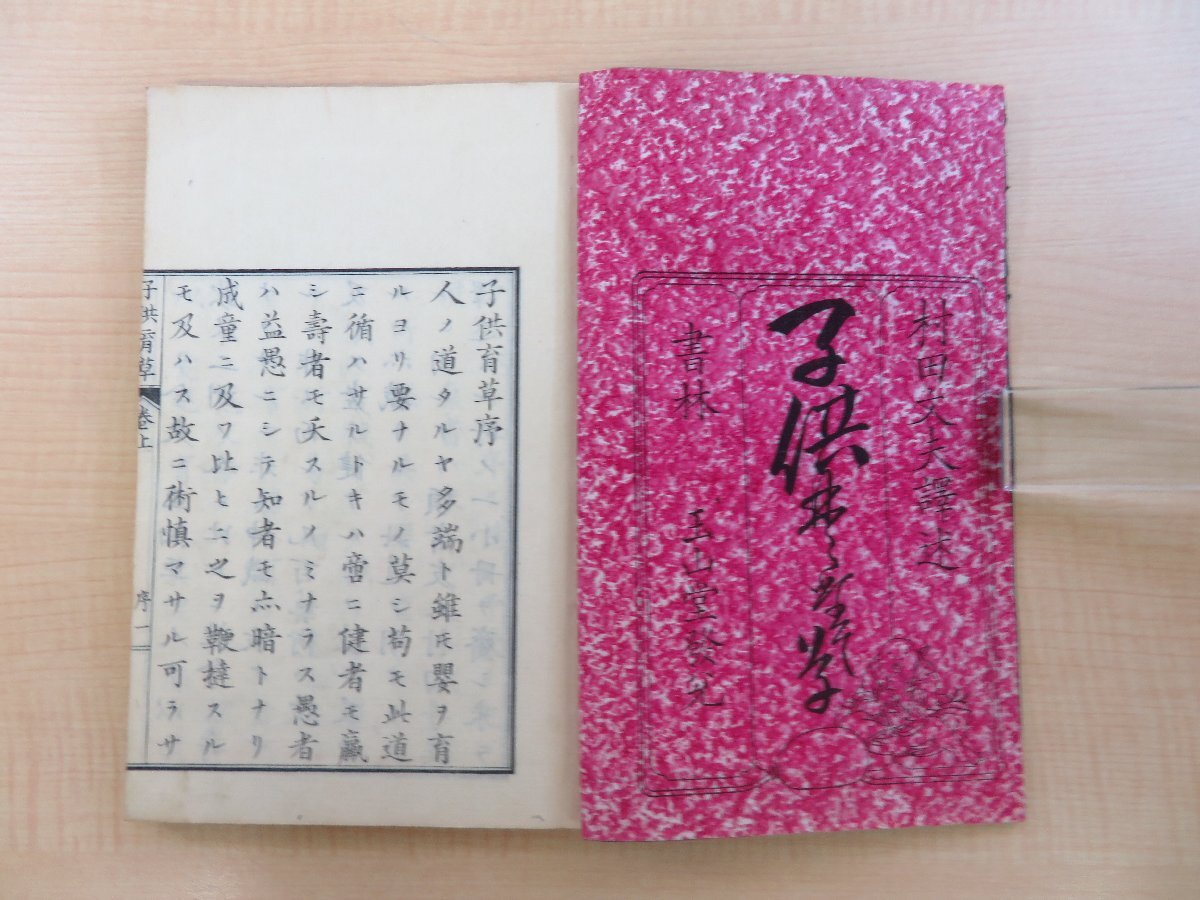 村田文夫譯述
子供
書林 玉山堂發兌
子供育草序
人ノ道タルヤ多端ト雖モ嬰ヲ育
ルヨリ要ナルモノ莫シ苟モ此道
ニ循ハサルトキハ啻ニ健者モ羸
シ壽者モ夭スルノミナラス愚者
ハ益愚ニシテ知者モ亦暗トナリ
成童ニ及フ比ヒニ之ヲ鞭撻スル
モ及ハス故ニ術慎マサル可ラサ
子供育草 卷上 序一